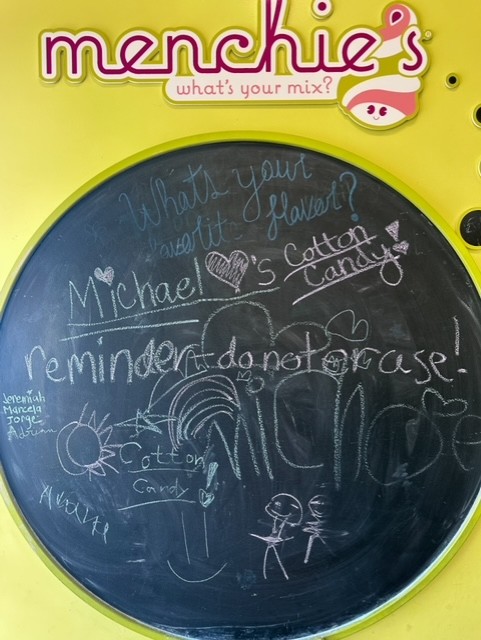 menchie's
what's your mix?
What's your
faverit flavert?
Michael 's Cotton
Candy!
reminder-do not crase!
Jeremiah
Marcela
Jorge
Adrian
Michae
Cotton
Candy!